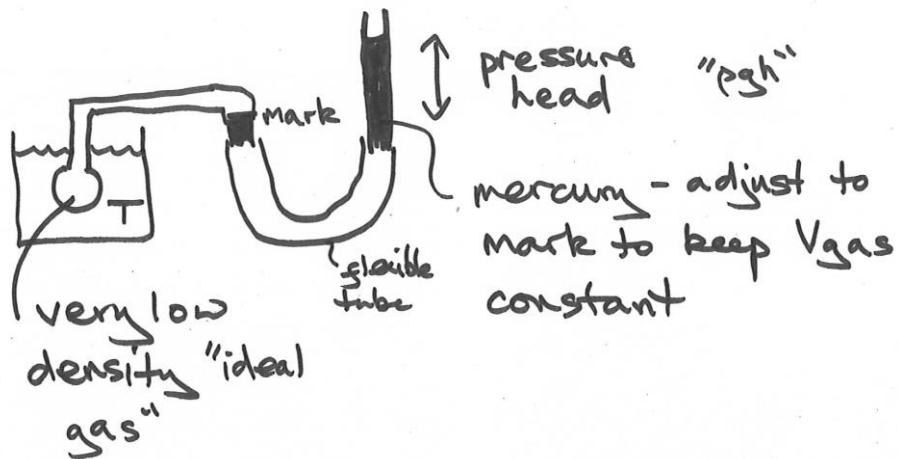 pressure "ρgh"
head
mark
mercury - adjust to
mark to keep Vgas
constant
T
flexible
tube
very low
density "ideal
gas"